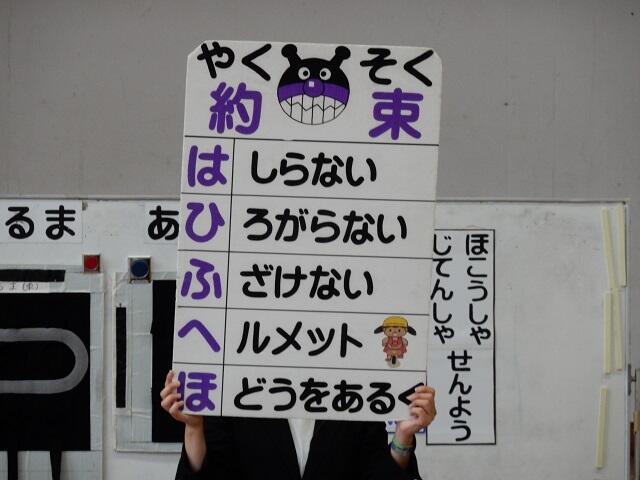 やく そく
約 束
は しらない
ひ ろがらない
ふ ざけない
へ ルメット
ほ どうをあるく
るま
あ
ほこうしゃ
じてんしゃ
せんよう